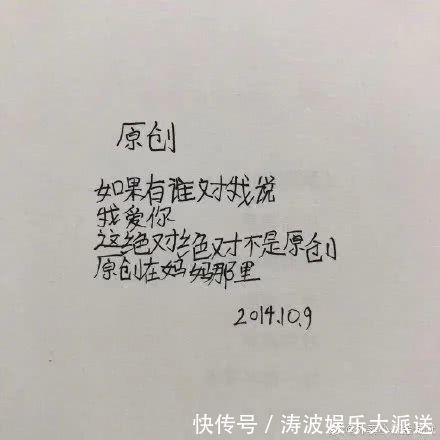 原创
如果有谁对我说
我爱你
这绝对绝对不是原创
原创在妈妈那里
2014.10.9
快传号/涛波娱乐大派送